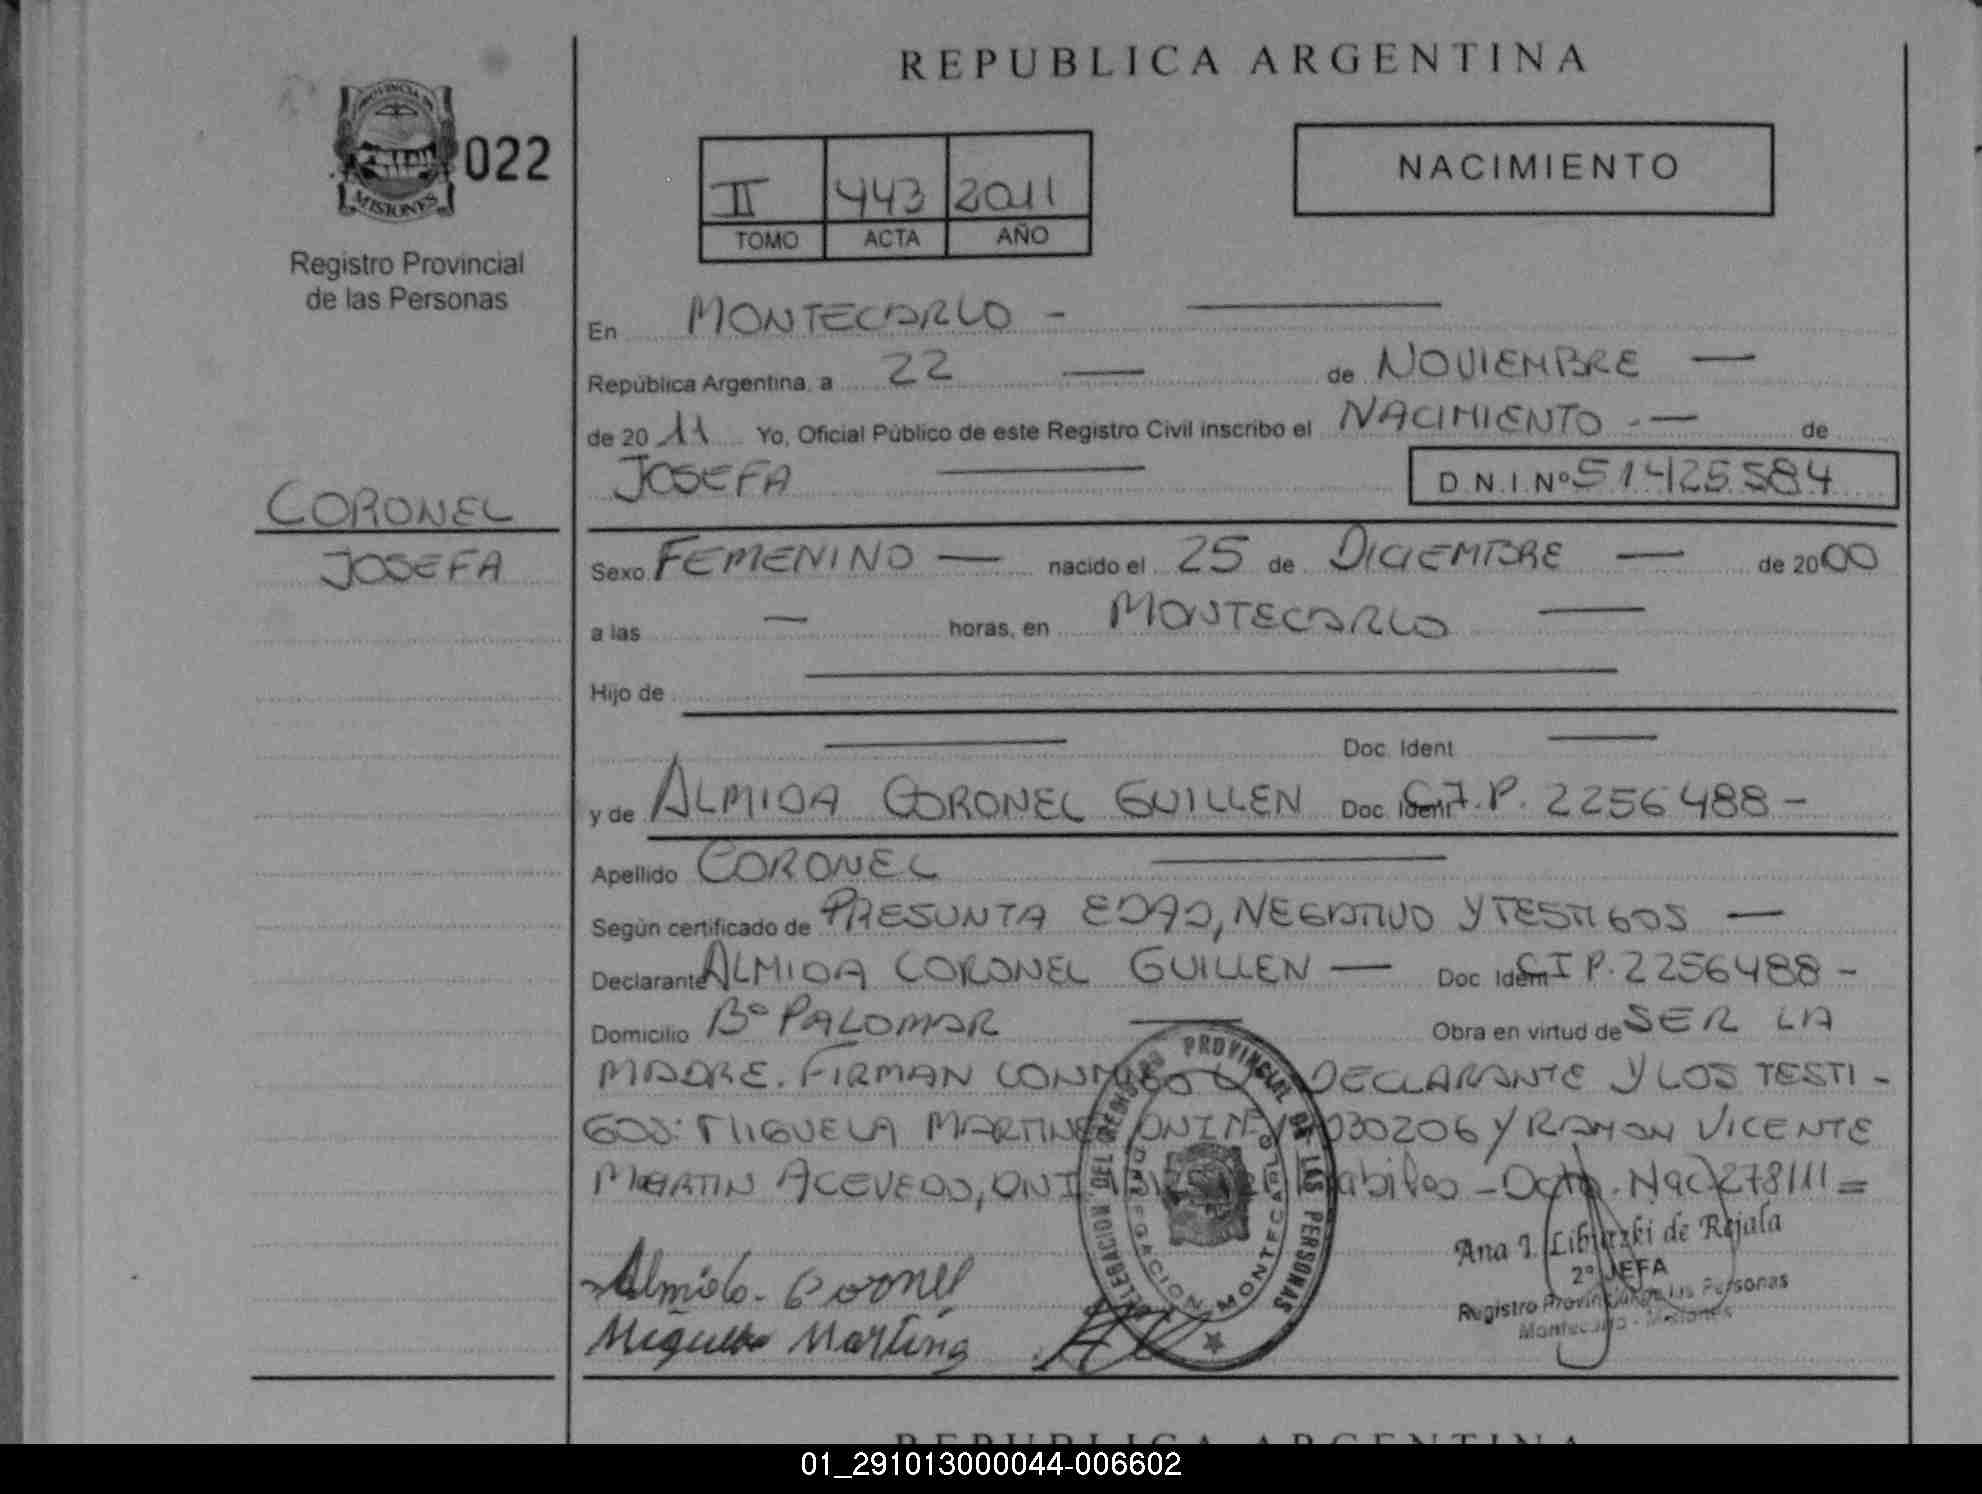 REPUBLICA ARGENTINA
PROVINCIA DE
MISIONES
022
Registro Provincial
de las Personas
II 443 2011
TOMO ACTA AÑO
NACIMIENTO
En MONTECARLO -
República Argentina, a 22 — de NOVIEMBRE —
de 2011 Yo, Oficial Público de este Registro Civil inscribo el NACIMIENTO - — de
JOSEFA — D.N.I.Nº 51425584
CORONEL
JOSEFA
Sexo FEMENINO — nacido el 25 de DICIEMBRE — de 2000
a las — horas, en MONTECARLO —
Hijo de —
— Doc. Ident —
y de ALMIDA CORONEL GUILLEN Doc. Ident C.I.P. 2256488 -
Apellido CORONEL —
Según certificado de PRESUNTA EDAD, NEGATIVO Y TESTIGOS —
Declarante ALMIDA CORONEL GUILLEN — Doc Ident C I P. 2256488 -
Domicilio Bº PALOMAR — Obra en virtud de SER LA
MADRE. FIRMAN CONMIGO LA DECLARANTE Y LOS TESTI -
GOS: MIGUELA MARTINEZ DNI Nº 030206 Y RAMON VICENTE
MARTIN ACEVEDO, DNI Habiles - Dcto. Nac 278/11 =
DELEGACION DEL REGISTRO PROVINCIAL DE LAS PERSONAS
DELEGACION MONTECARLO
Almida. Coronel
Miguela Martinez
Ana I. de Rejala
2º JEFA
Registro Provincial de las Personas
Montecarlo - Misiones
REPUBLICA ARGENTINA
01_291013000044-006602